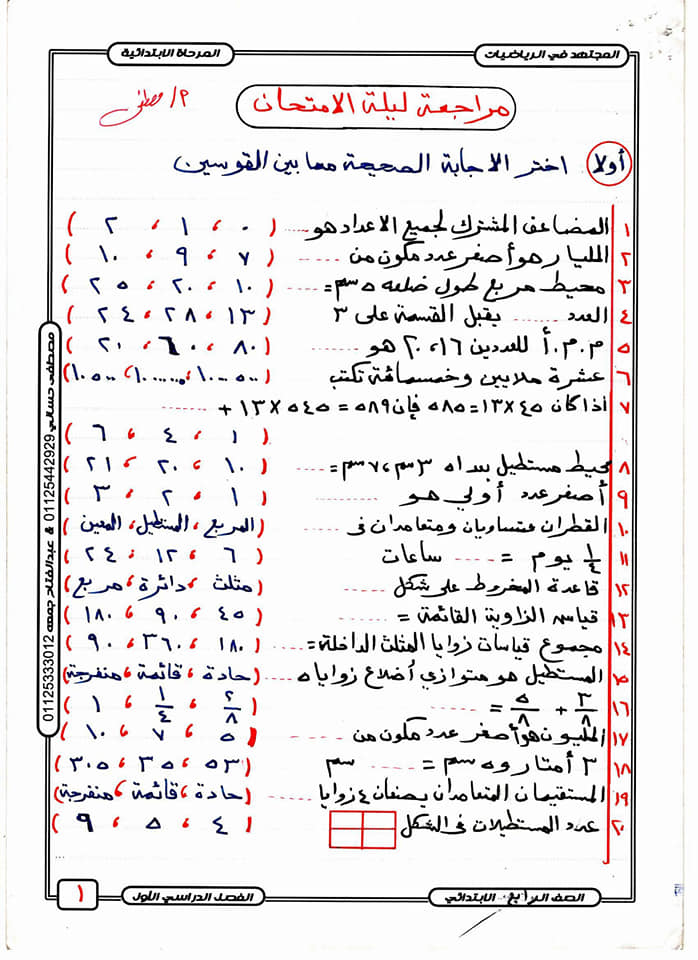 المجتهد في الرياضيات
المرحلة الابتدائية
مراجعة ليلة الامتحان
م/ مصطفى
أولا اختر الاجابة الصحيحة مما بين القوسين
١ المضاعف المشترك لجميع الاعداد هو ...... ( ٠ ، ١ ، ٢ )
٢ المليار هو أصغر عدد مكون من ...... ( ٧ ، ٩ ، ١٠ )
٣ محيط مربع طول ضلعه ٥ سم = ...... ( ١٠ ، ٢٠ ، ٢٥ )
٤ العدد ...... يقبل القسمة على ٣ ( ١٣ ، ٢٨ ، ٢٤ )
٥ م.م.أ للعددين ١٦ ، ٢٠ هو ...... ( ٨٠ ، ٦٠ ، ٢٠ )
٦ عشرة ملايين وخمسمائة تكتب
٧ أذا كان ٤٥ × ١٣ = ٥٨٥ فإن ٥٨٩ = ٤٥ × ١٣ + ......
( ١ ، ٤ ، ٦ )
٨ محيط مستطيل بعداه ٣ سم ، ٧ سم = ...... ( ١٠ ، ٢٠ ، ٢١ )
٩ أصغر عدد أولي هو ...... ( ١ ، ٢ ، ٣ )
١٠ القطران متساويان ومتعامدان فى ...... ( المربع ، المستطيل ، المعين )
١١ ١/٤ يوم = ...... ساعات ( ٦ ، ١٢ ، ٢٤ )
١٢ قاعدة المخروط على شكل ...... ( مثلث ، دائرة ، مربع )
١٣ قياس الزاوية القائمة = ...... ( ٤٥ ، ٩٠ ، ١٨٠ )
١٤ مجموع قياسات زوايا المثلث الداخلة = ...... ( ١٨٠ ، ٣٦٠ ، ٩٠ )
١٥ المستطيل هو متوازي أضلاع زواياه ...... ( حادة ، قائمة ، منفرجة )
١٦ ٣/٨ + ٥/٨ = ...... ( ٢/٨ ، ١/٤ ، ١ )
١٧ المليون هو أصغر عدد مكون من ...... ( ٥ ، ٧ ، ١٠ )
١٨ ٣ أمتار و ٥ سم = ...... سم ( ٥٣ ، ٣٥ ، ٣٠٥ )
١٩ المستقيمان المتعامدان يصنعان ٤ زوايا ...... ( حادة ، قائمة ، منفرجة )
٢٠ عدد المستطيلات فى الشكل ( ٤ ، ٥ ، ٩ )
مصطفى حساني 01125442929 & عبدالفتاح جمعه 01125333012
الصف الرابع الابتدائي
الفصل الدراسي الأول
١